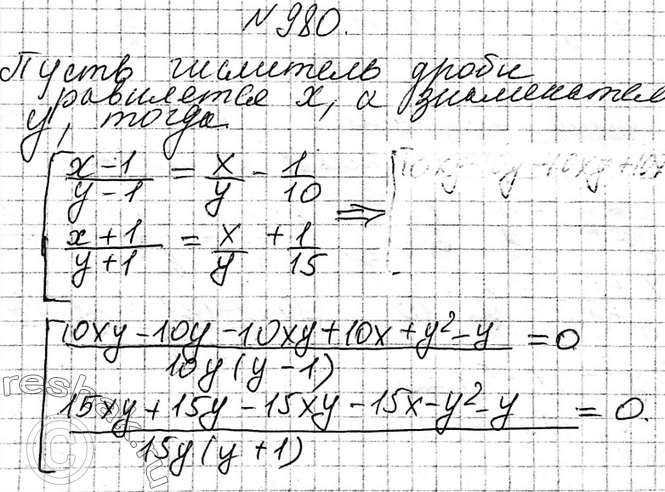 №980.
Пусть числитель дроби
равняется x, а знаменатель
y, тогда
(x-1)/(y-1) = x/y - 1/10
(x+1)/(y+1) = x/y + 1/15 ⇒
(10xy-10y-10xy+10x+y²-y)/(10y(y-1)) = 0
(15xy+15y-15xy-15x-y²-y)/(15y(y+1)) = 0.
reshak.ru